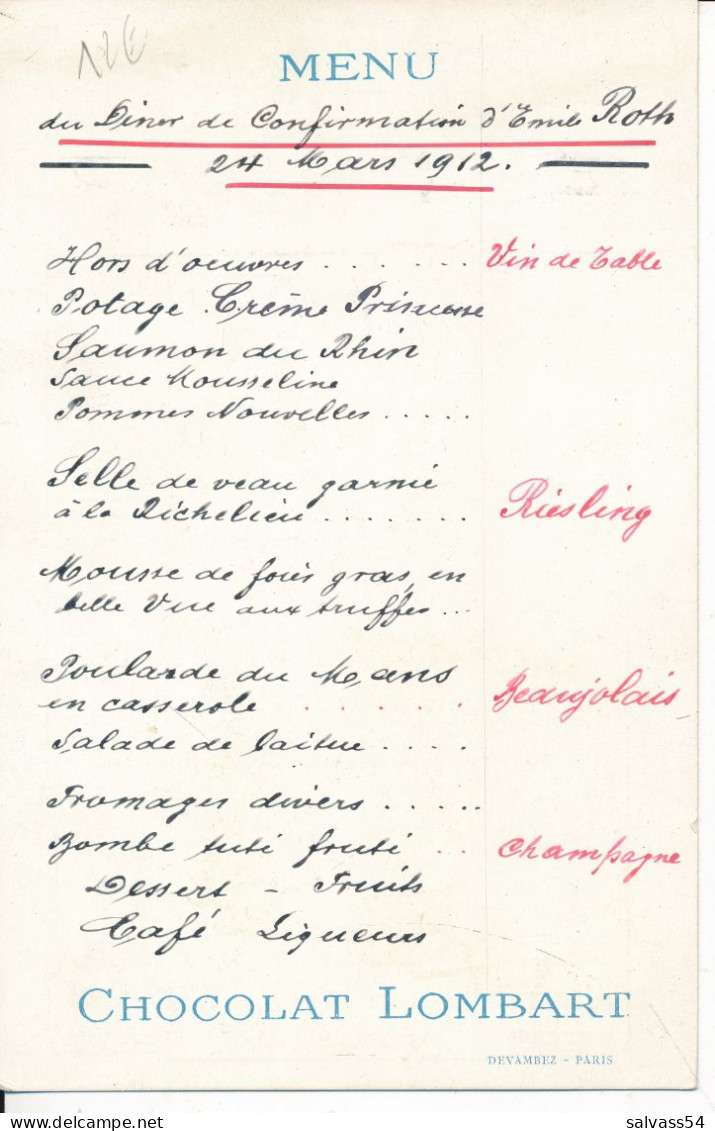 12€
MENU
du Diner de Confirmation d'Emile Roth
24 Mars 1912.
Hors d'oeuvres . . . . . . Vin de Table
Potage Crème Princesse
Saumon du Rhin
Sauce Mousseline
Pommes Nouvelles . . . . .
Selle de veau garnie
à la Richelieu . . . . . . . Riesling
Mousse de foies gras, en
belle Vue aux truffes ...
Poularde du Mans
en casserole . . . . . Beaujolais
Salade de laitue . . . .
Fromages divers . . . . .
Bombe tuti fruti . . Champagne
Dessert - Fruits
Café Liqueurs
CHOCOLAT LOMBART
DEVAMBEZ - PARIS
salvass54